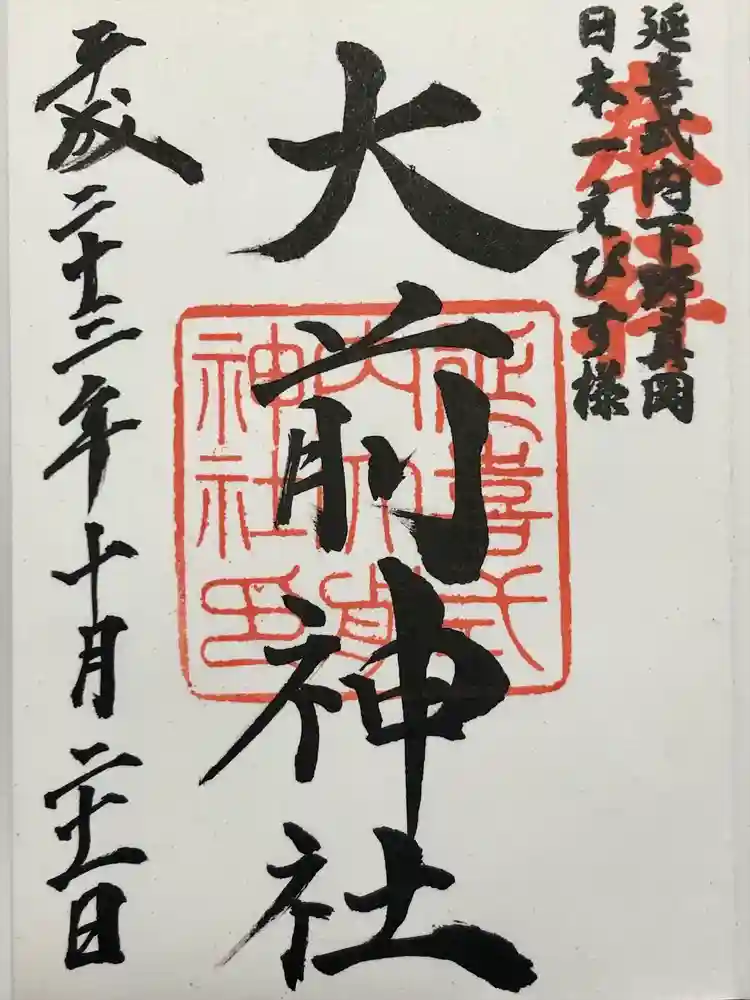 延喜式内下野真岡
日本一えびす様
奉拝
大前神社
延喜式
神社印
平成二十二年十月二十一日